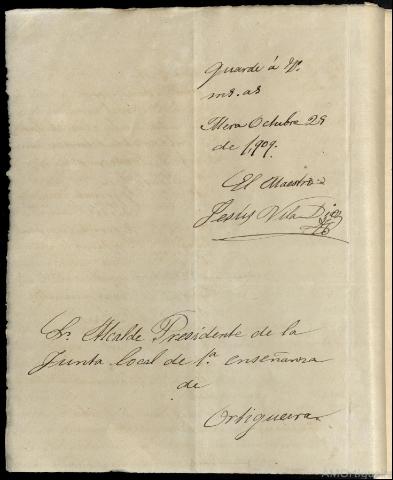 guarde á V.
ms. as
Mera Octubre 29
de 1909.
El Maestro:
Jesús Vila Díaz
Sr. Alcalde Presidente de la
Junta local de 1ª enseñanza
de
Ortigueira